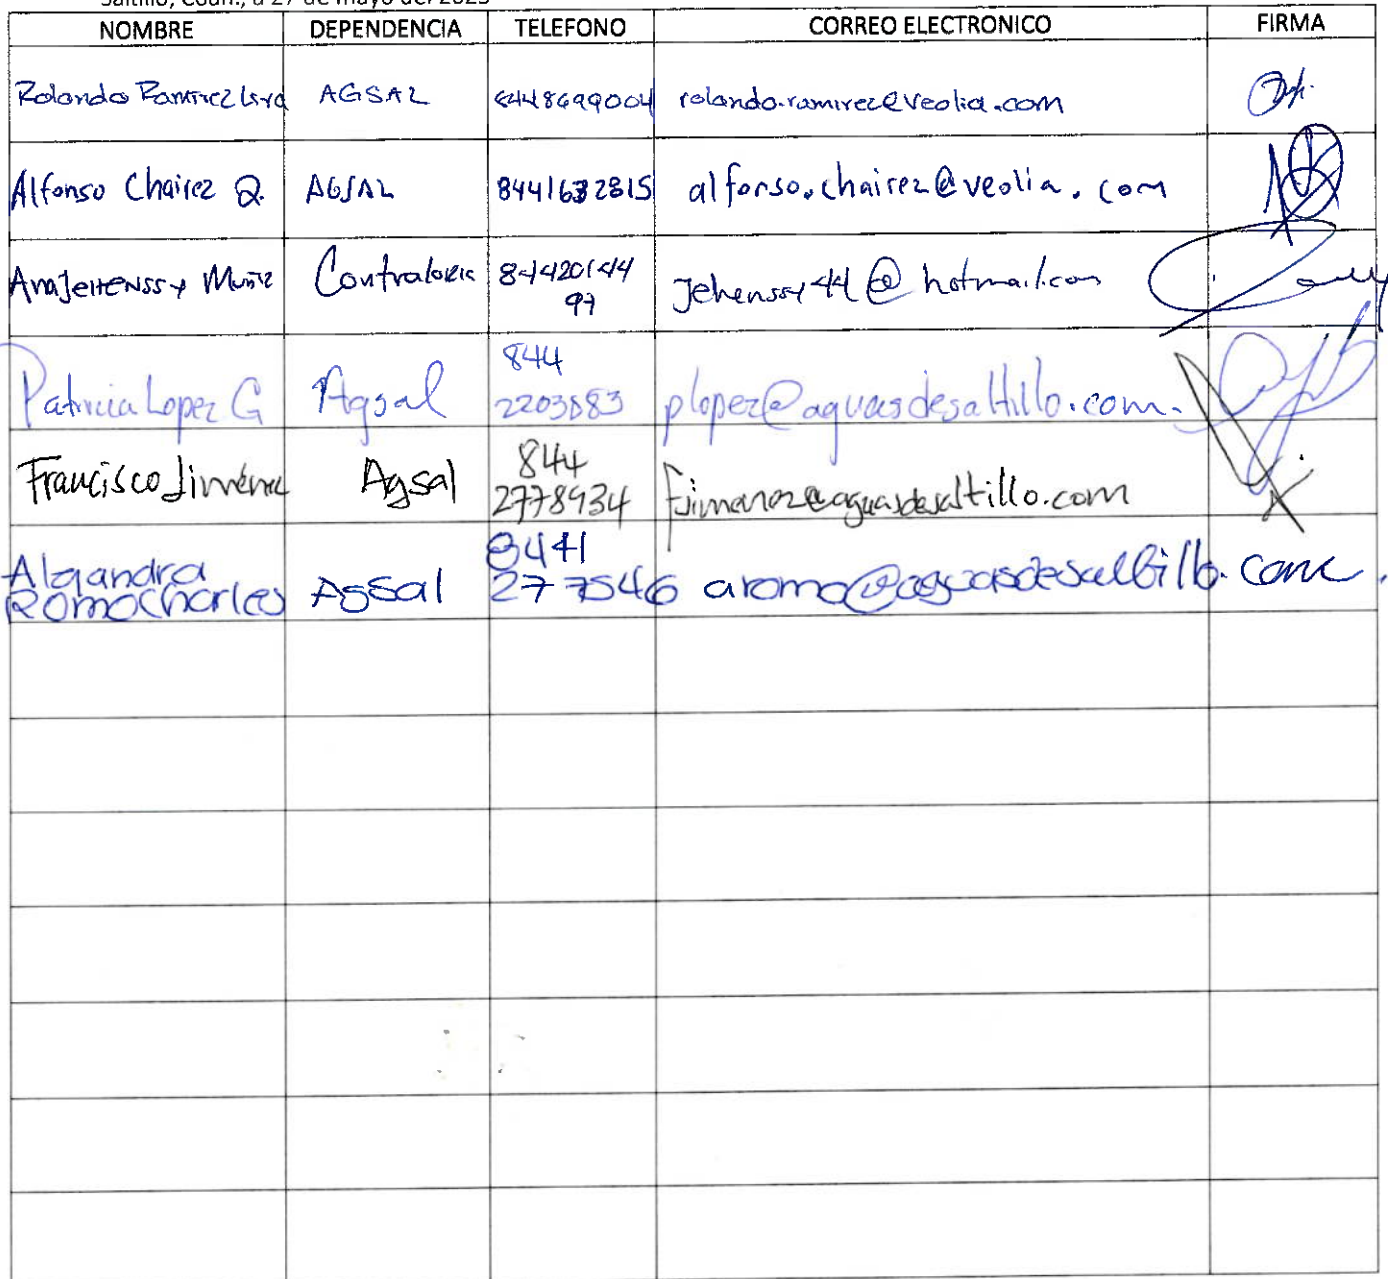 Saltillo, Coah., a 27 de mayo del 2025
NOMBRE DEPENDENCIA TELEFONO CORREO ELECTRONICO FIRMA
Rolando Ramirez AGSAL 8448699004 rolando.ramirez@veolia.com
Alfonso Chairez Q. AGSAL 8441632815 alfonso.chairez@veolia.com
Contraloria 84420144
97
Jehenssy44@hotmail.com
844
Patricia Lopez G Agsal 2203883 plopez@aguasdesaltillo.com.
844
Francisco Jiménez Agsal 2778934 fjimenez@aguasdesaltillo.com
Alejandra 8441
Romo Charles Agsal 277546 aromo@aguasdesaltillo.com.